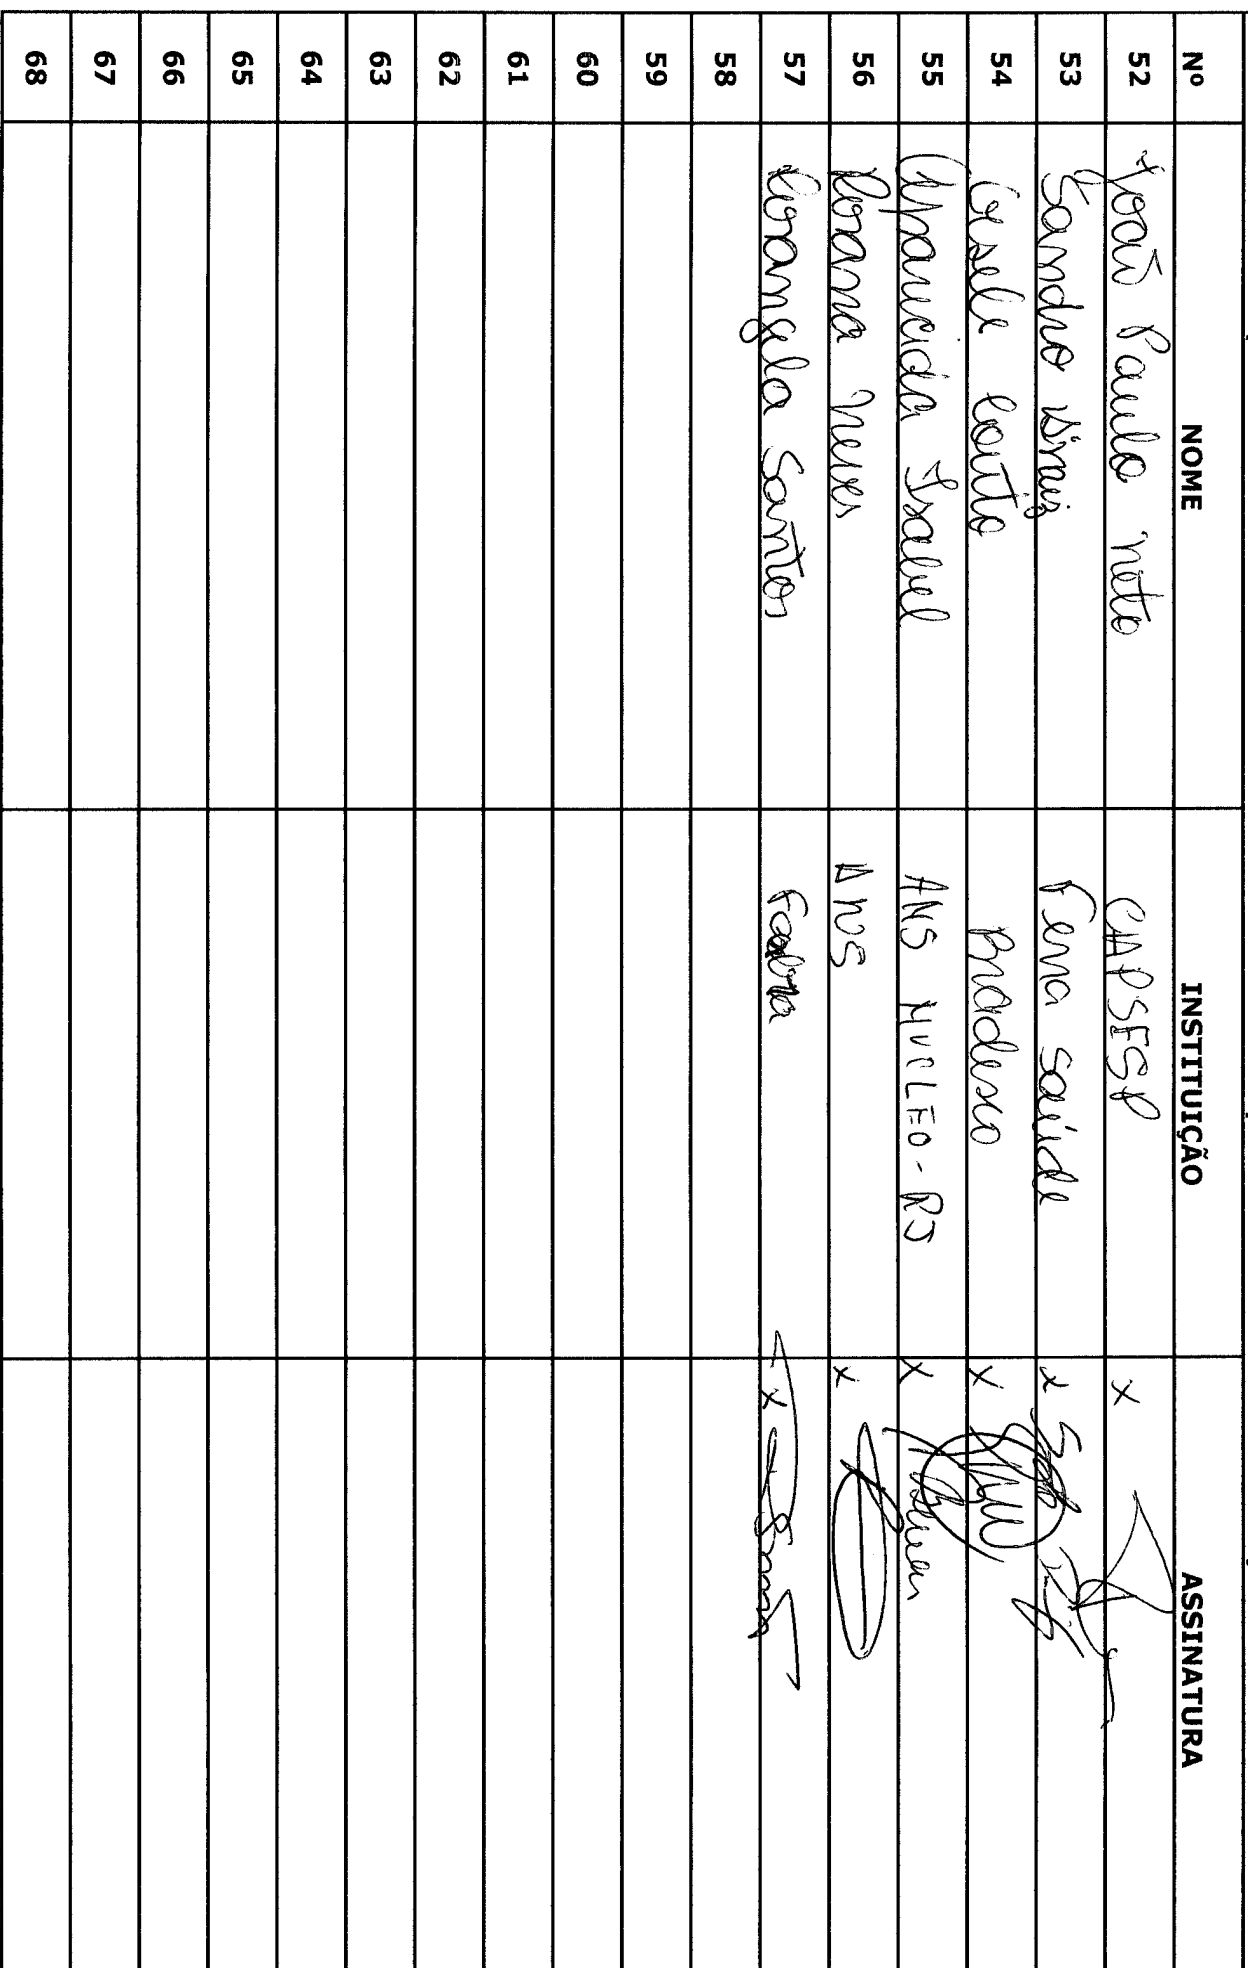 Nº NOME INSTITUIÇÃO ASSINATURA
52 João Paulo Neto CAPSESP x
53 Sandro Diniz Fema saúde x
54 Gisele Couto Bradesco x
55 Aparecida Isabel ANS NUCLEO-RJ x
56 Neves ANS x
57 Santos x
58
59
60
61
62
63
64
65
66
67
68